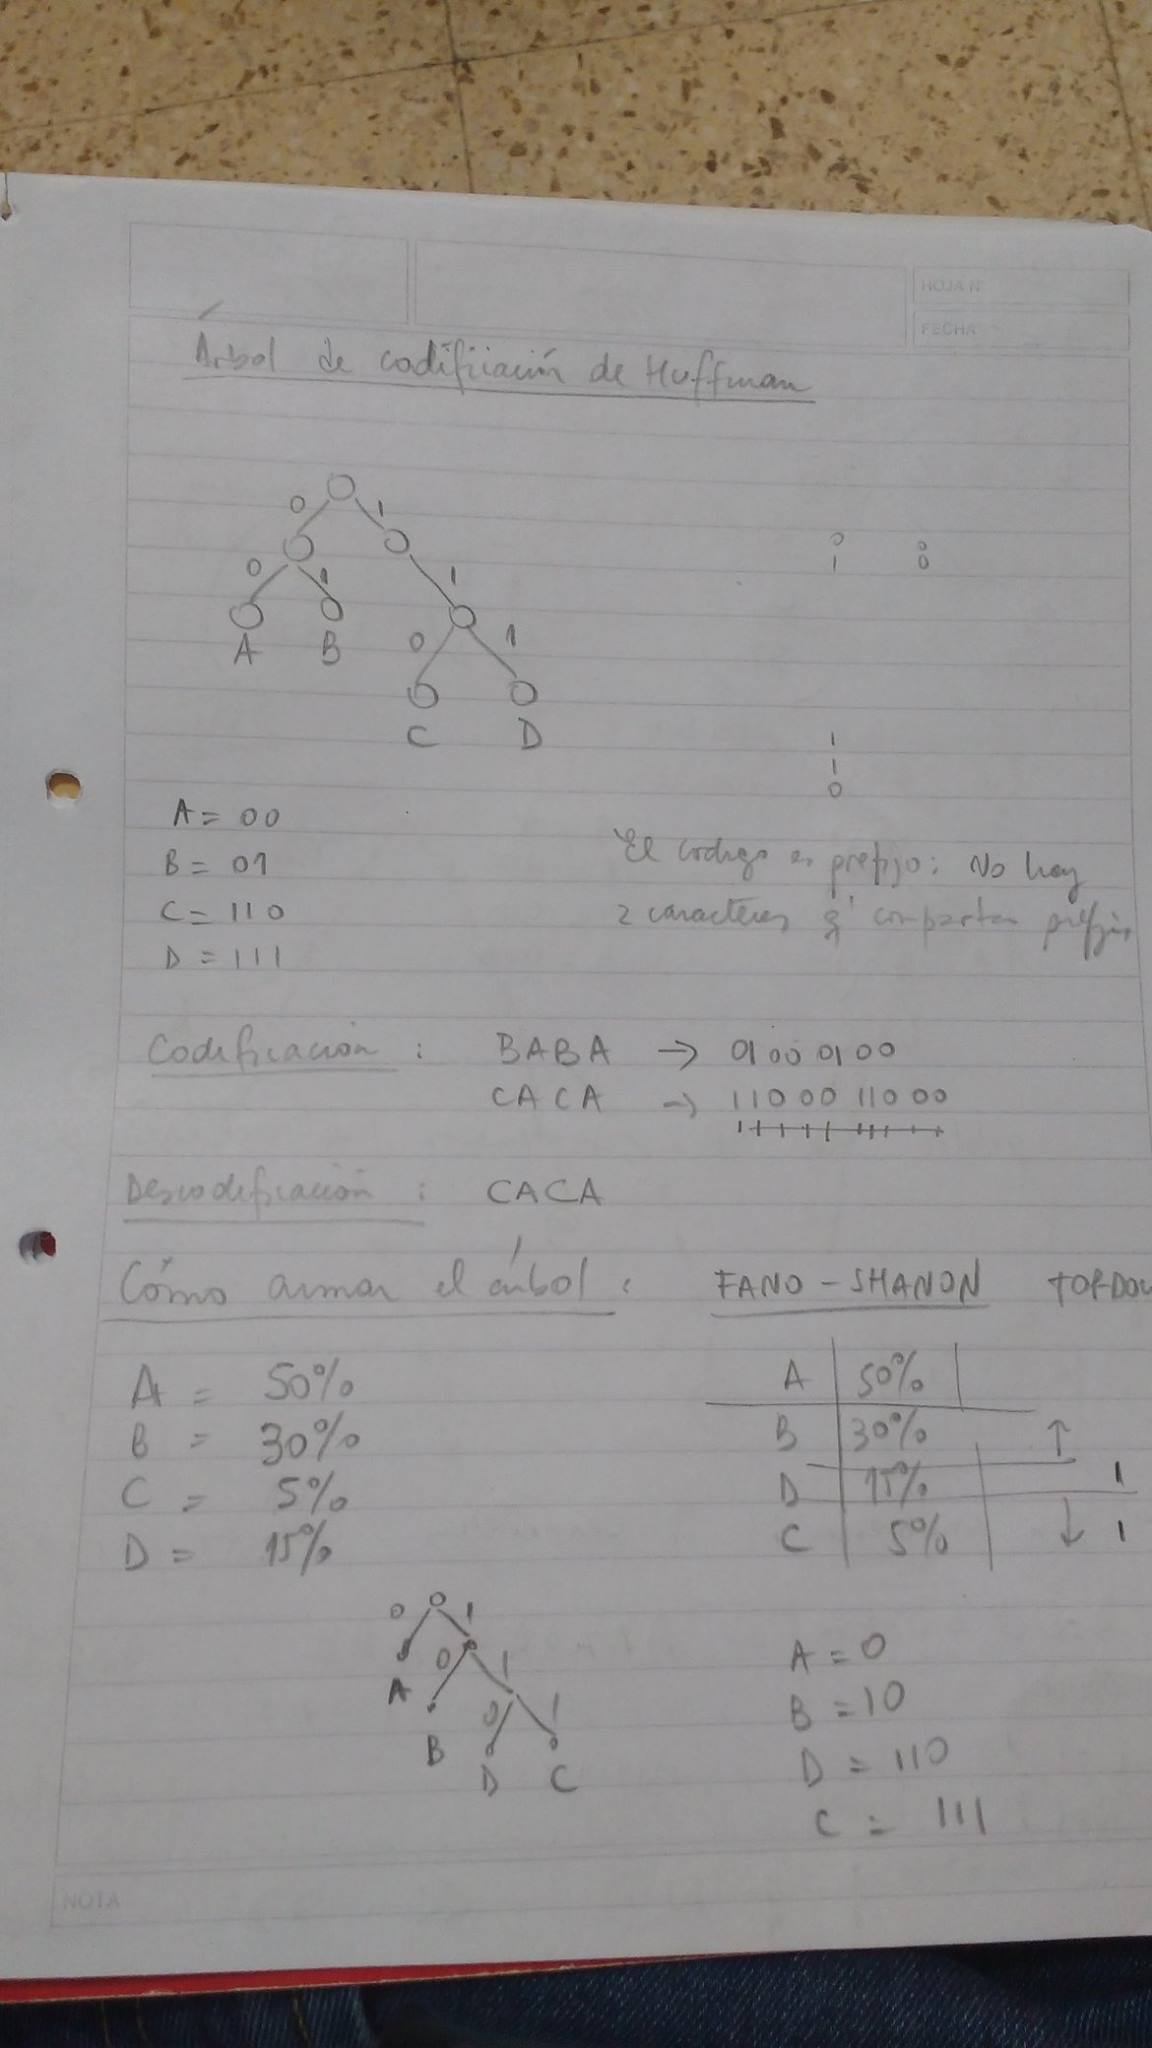 HOJA Nº
FECHA
Árbol de codificación de Huffman
0 1
0 1 1
A B 0 1
C D
0 0
1 0
1
1
0
A = 00
B = 01
C = 110
D = 111
El código es prefijo: No hay
2 caracteres q' compartan prefijo
Codificación : BABA → 01 00 01 00
CACA → 110 00 110 00
Descodificación : CACA
Cómo armar el árbol : FANO - SHANON TOPDOW
A = 50%
B = 30%
C = 5%
D = 15%
A 50%
B 30% ↑
D 15% 1
C 5% ↓ 1
0 1
A 0 1
B 0 1
D C
A = 0
B = 10
D = 110
C = 111
NOTA